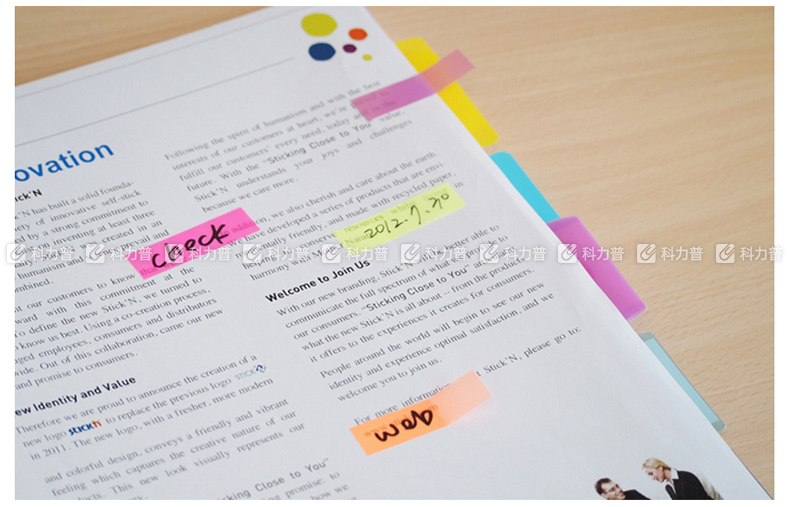 ovation
ck'N
k'N has built a solid founda-
ery of innovative self-stick
by a strong commitment to
at least three
in an
and
humanism and
mbined.
our customers to know
ward with this commitment at the
To define the new Stick'N, we turned to
know us best. Using a co-creation process,
ged employees, consumers and distributors
wide. Out of this collaboration, came our new
and promise to consumers.
ew Identity and Value
Therefore we are proud to announce the creation of a
new logo STICK'N to replace the previous logo STICK'N
in 2011. The new logo, with a fresher, more modern
and colorful design, conveys a friendly and vibrant
feeling which captures the creative nature of our
ducts. This new look visually represents our
cking Close to You"
promise: to
how we
check
Following the spirit of humanism and with the best
interests of our customers at heart, we're
fulfill our customers' every need, today and in the
future. With the "Sticking Close to You" value,
Stick'N understands your joys and challenges
because we care more.
In addition, we also cherish and care about the earth.
We have developed a series of products that are envi-
ronmentally friendly and made with recycled paper,
conserve resources
harmony with
2012.7.30
Welcome to Join Us
With our new branding, Stick'N will be better able to
communicate the full spectrum of what
our consumers. "Sticking Close to You" are
what the new Stick'N is all about – from the products
it offers to the experiences it creates for consumers.
People around the world will begin to see our new
identity and experience optimal satisfaction, and we
welcome you to join us.
For more information Stick'N, please go to:
web
科力普 科力普 科力普 科力普 科力普 科力普 科力普 科力普 科力普 科力普